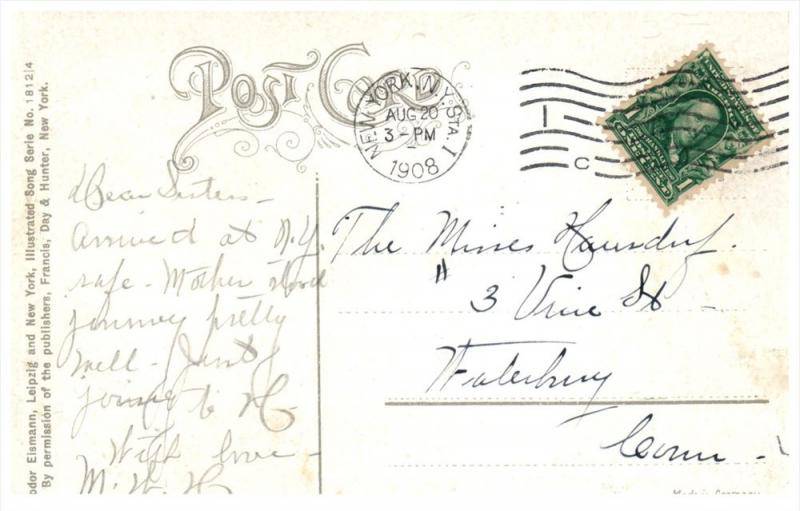 Post Card
NEW YORK, N.Y. STA. I
AUG 20
3 - PM
1908
I
C
Dear Sisters -
Arrived at N.Y.
safe - Mother stood
journey pretty
well - Just
going to H-
With love -
M. W. H.
The Misses
" 3 Vine St -
Waterbury
Conn -
odor Eismann, Leipzig and New York, Illustrated Song Serie No. 1812|4
By permission of the publishers, Francis, Day & Hunter, New York.
Made in Germany